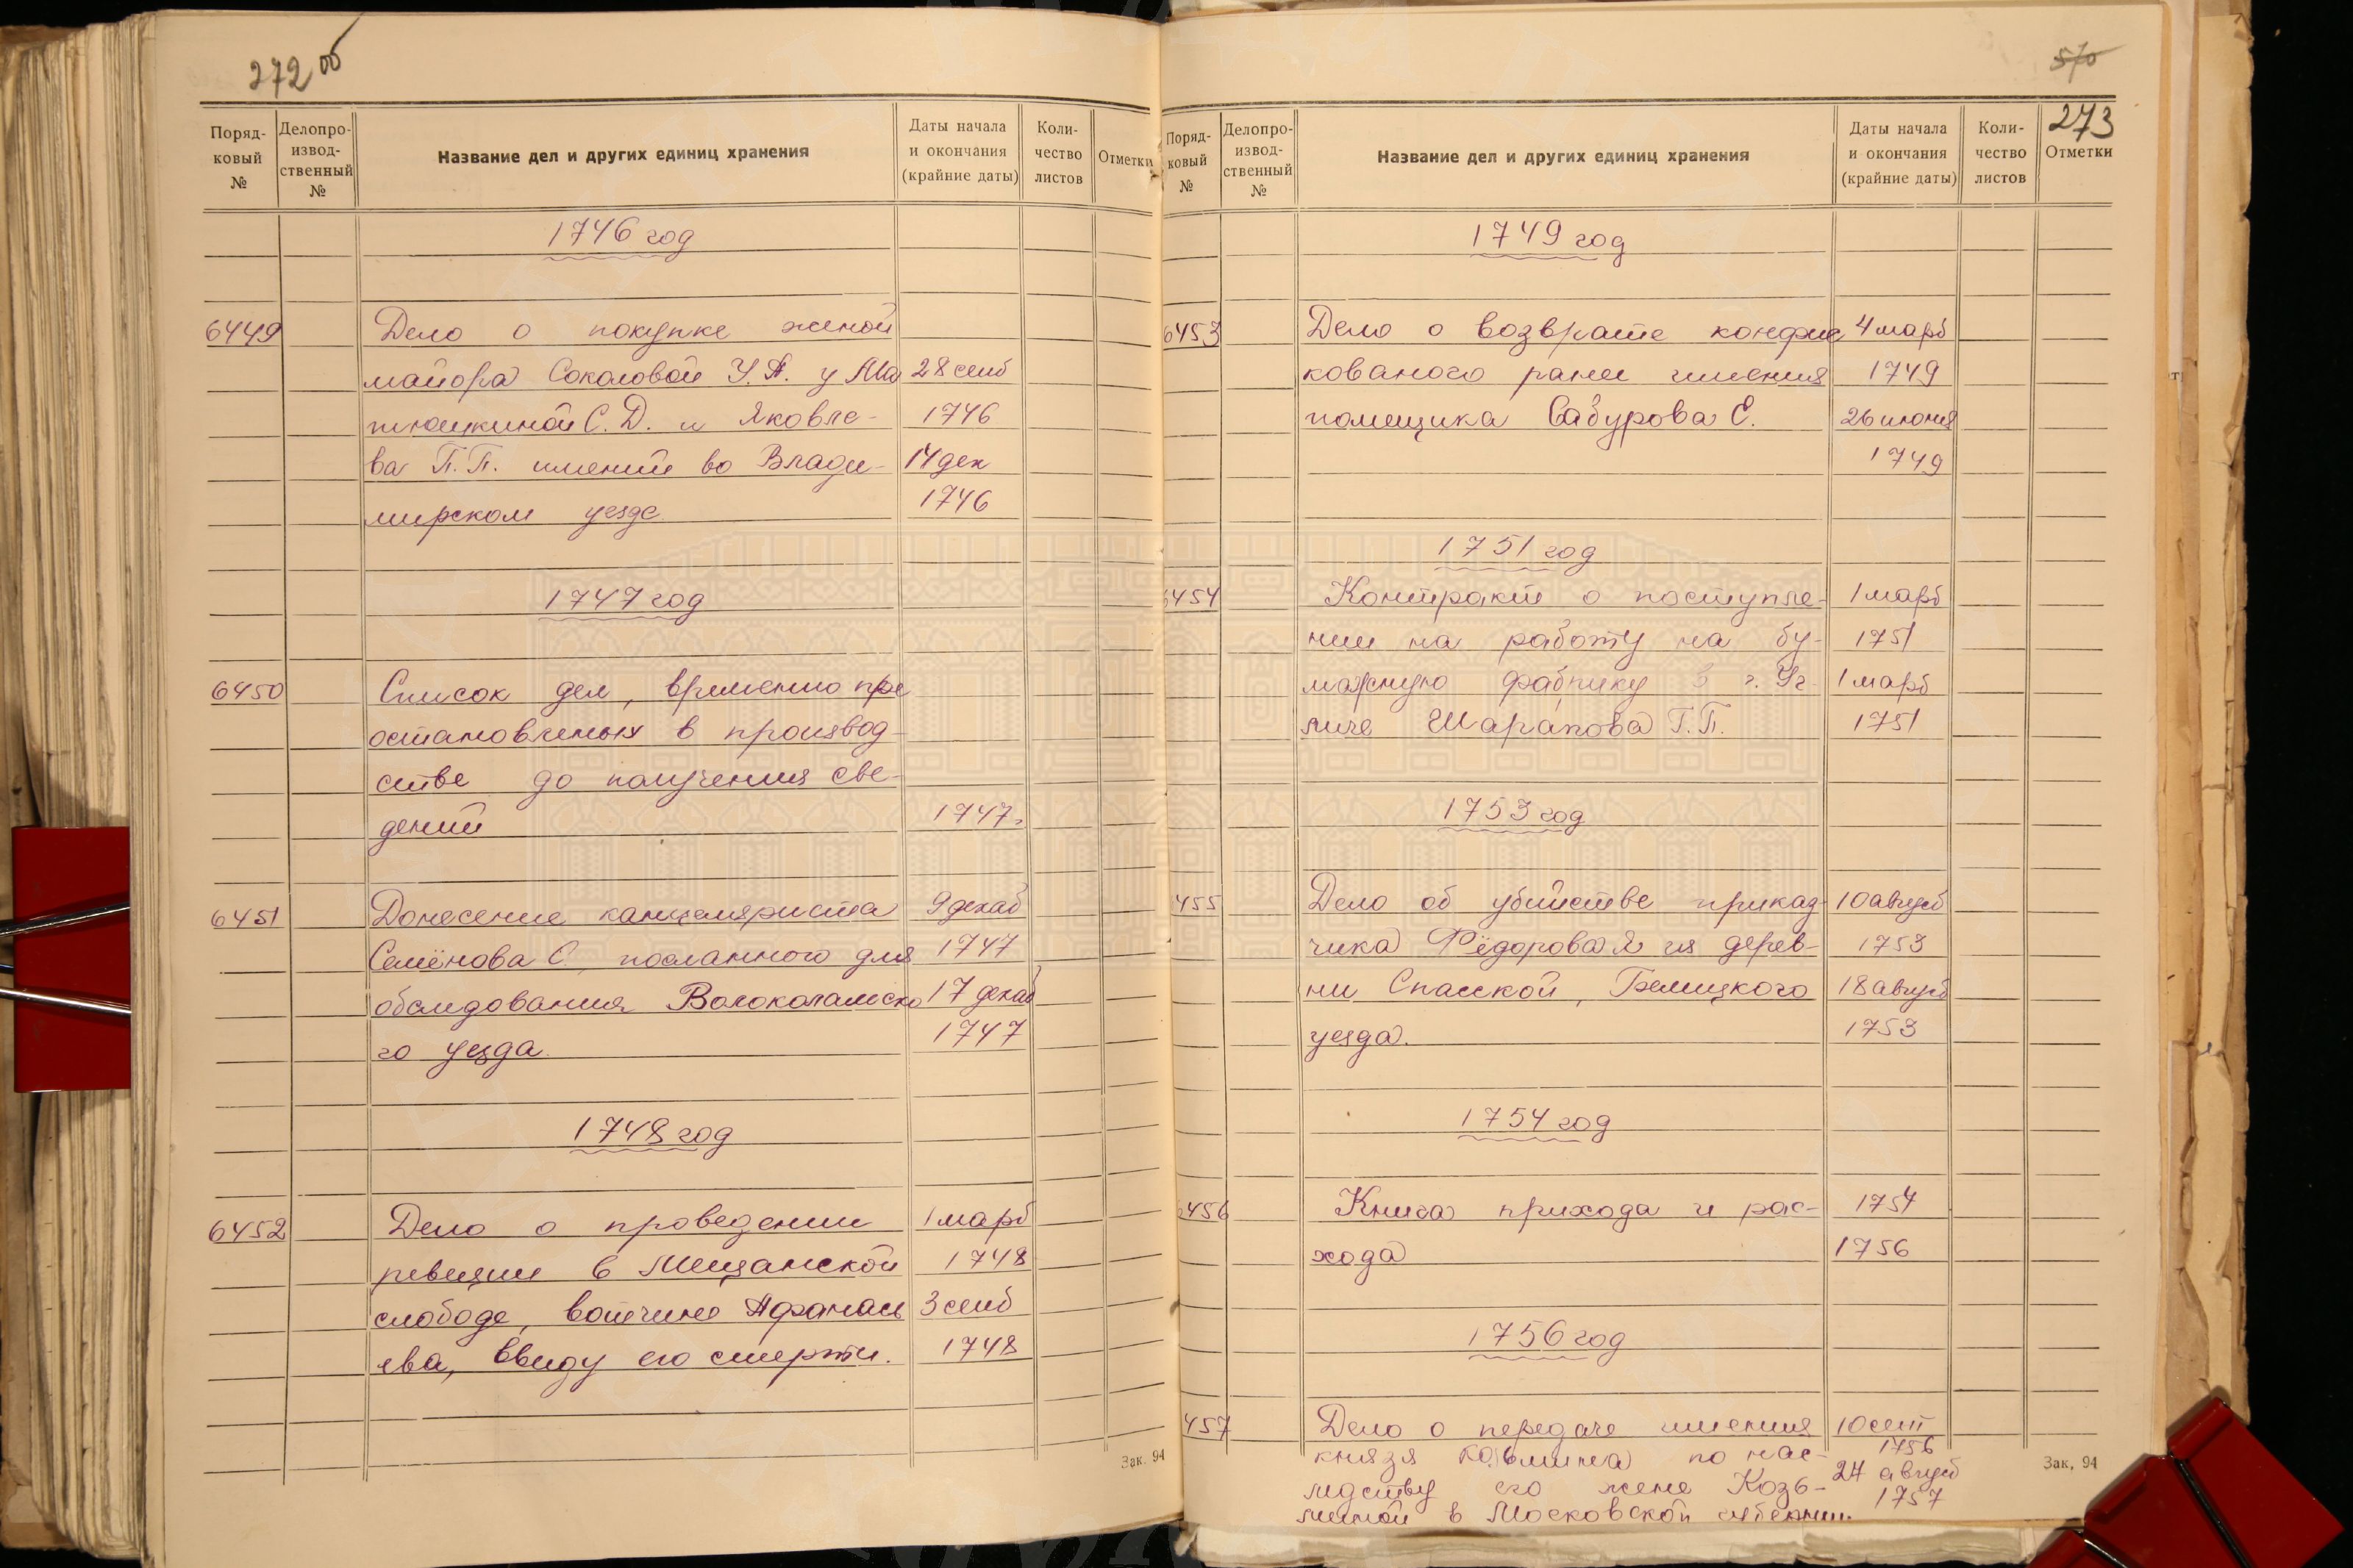 272 об
Поряд-
ковый
№
Делопро-
извод-
ственный
№
Название дел и других единиц хранения
Даты начала
и окончания
(крайние даты)
Коли-
чество
листов
Отметки
1746 год
6449 Дело о покупке женой
майора Соколовой У.А. у Ма 28 сент
тюшкиной С.Д. и Яковле- 1746
ва П.П. имений во Влади- 14 дек
мирском уезде. 1746
1747 год
6450 Список дел, временно прi
остановленных в производ-
стве до получения све-
дений 1747г
6451 Донесение канцеляриста 9 декаб
Семёнова С., посланного для 1747
обследования Волоколамско 17 декаб
го уезда. 1747
1748 год
6452 Дело о проведении 1 марб
ревизии в Мещанской 1748
слободе, вотчине Афанась 3 сенб
ева, ввиду его смерти. 1748
Зак. 94
570
273
Поряд-
ковый
№
Делопро-
извод-
ственный
№
Название дел и других единиц хранения
Даты начала
и окончания
(крайние даты)
Коли-
чество
листов
Отметки
1749 год
6453 Дело о возврате конфис 4 марб
кованого ранее имения 1749
помещика Сабурова С. 26 июня
1749
1751 год
6454 Контракт о поступле- 1 марб
нии на работу на бу- 1751
мажную фабрику в г. Уг- 1 марб
личе Шарапова Г.П. 1751
1753 год
455 Дело об убийстве приказ- 10 авгуб
чика Фёдорова Я из дерев- 1753
ни Спасской, Бежицкого 18 авгуб
уезда. 1753
1754 год
456 Книга прихода и рас- 1754
хода 1756
1756 год
457 Дело о передаче имения 10 сент
князя Козьмина по нас- 1756
ледству его жене Козь- 24 авгуб
миной в Московской губернии. 1757
Зак. 94